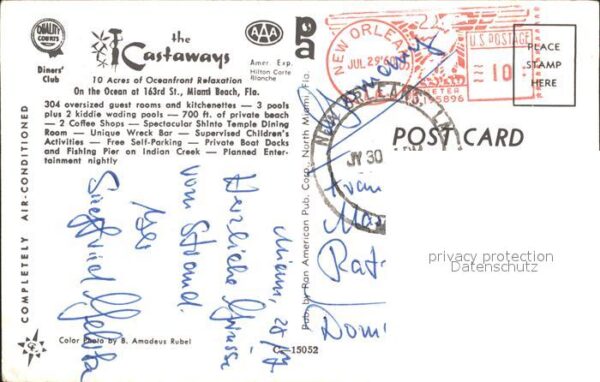 QUALITY COURTS
Diners'
Club
the
Castaways
AAA
Amer. Exp.
Hilton Carte
Blanche
10 Acres of Oceanfront Relaxation
On the Ocean at 163rd St., Miami Beach, Fla.
304 oversized guest rooms and kitchenettes — 3 pools
plus 2 kiddie wading pools — 700 ft. of private beach
— 2 Coffee Shops — Spectacular Shinto Temple Dining
Room — Unique Wreck Bar — Supervised Children's
Activities — Free Self-Parking — Private Boat Docks
and Fishing Pier on Indian Creek — Planned Enter-
tainment nightly
COMPLETELY AIR-CONDITIONED
Miami,
Herzliche Grüsse
vom Strand.
Color Photo by B. Amadeus Rubel
C-15052
Pub. by Pan American Pub. Corp., North Miami, Fla.
pa
NEW ORLEANS
JUL 29
U.S. POSTAGE
10
METER
195896
NEW ORLEANS, LA.
JY 30
PLACE
STAMP
HERE
POST CARD
Germany
Frau
Rat
Domi
privacy protection
Datenschutz